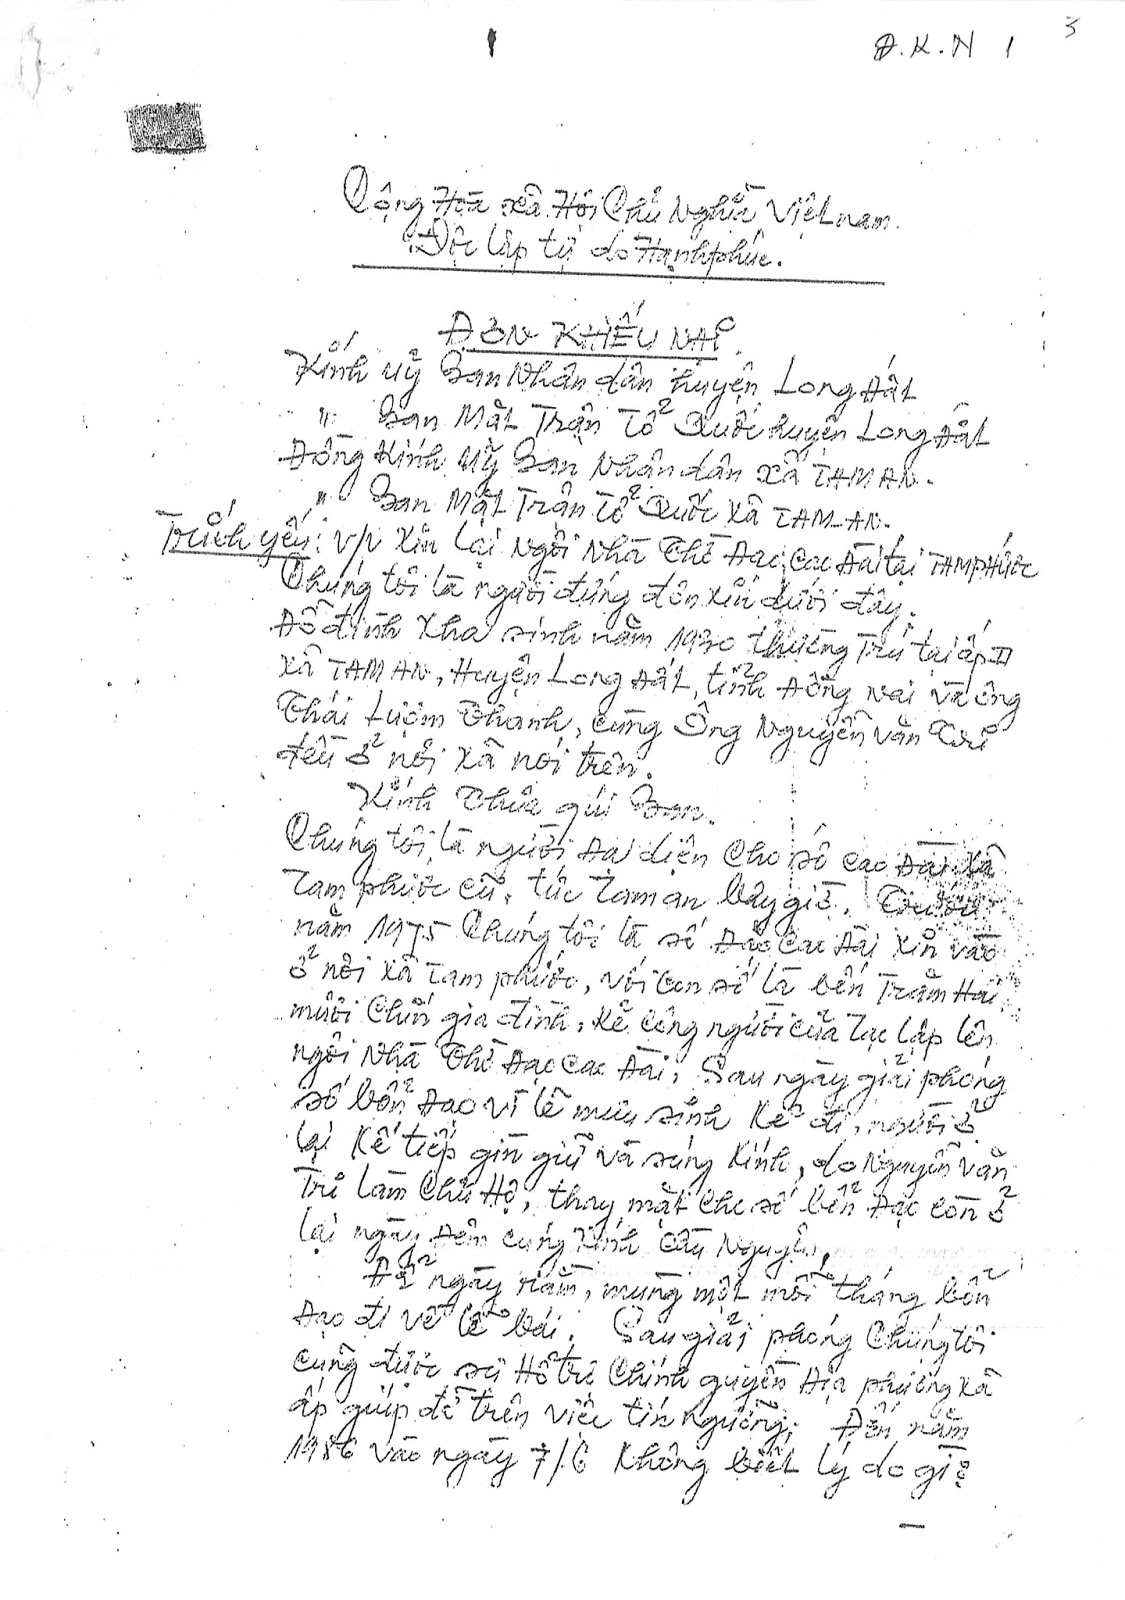 3
Đ.K.N 1
Cộng Hòa Xã Hội Chủ Nghĩa Việt nam.
Độc lập tự do Hạnh phúc.
ĐƠN KHIẾU NẠI
Kính Uỷ Ban Nhân dân huyện Long Đất
" Ban Mặt Trận Tổ Quốc huyện Long Đất
Đồng Kính Uỷ Ban Nhân dân xã TAM AN.
" Ban Mặt Trận Tổ Quốc Xã TAM-AN.
Trích yếu: V/v Xin lại ngôi Nhà Thờ Đạo Cao Đài tại TAM PHƯỚC
Chúng tôi là người đứng đơn xin dưới đây.
Đỗ đình Kha sinh năm 1930 thường Trú tại ấp II
xã TAM AN, Huyện Long Đất, tỉnh Đồng Nai và ông
Thái Lượm Thanh, cùng Ông Nguyễn văn Trí
đều ở nơi xã nói trên.
Kính Thưa quí Ban.
Chúng tôi là người đại diện cho số Cao Đài Xã
Tam phước cũ, tức Tam an bây giờ. Trước
năm 1975 Chúng tôi là số Đạo Cao Đài xin vào
ở nơi xã Tam phước, với con số là bốn Trăm Hai
mươi Chín gia đình, kẻ công người của tạo lập lên
ngôi Nhà Thờ Đạo Cao Đài, Sau ngày giải phóng
số bổn Đạo vì lẽ mưu sinh kẻ đi, người ở
lại kế tiếp gìn giữ và súng kính, do Nguyễn văn
Trí làm Chủ Hộ, thay mặt cho số bổn Đạo còn ở
lại ngày đêm cúng kính cầu Nguyện,
Để ngày rằm, mùng một mỗi tháng bổn
Đạo đi về lễ bái. Sau giải phóng Chúng tôi
cũng được sự Hổ trợ Chính quyền Địa phương xã
ấp giúp đở trên việc tín ngưỡng; Đến năm
1986 vào ngày 7/6 không biết lý do gì?